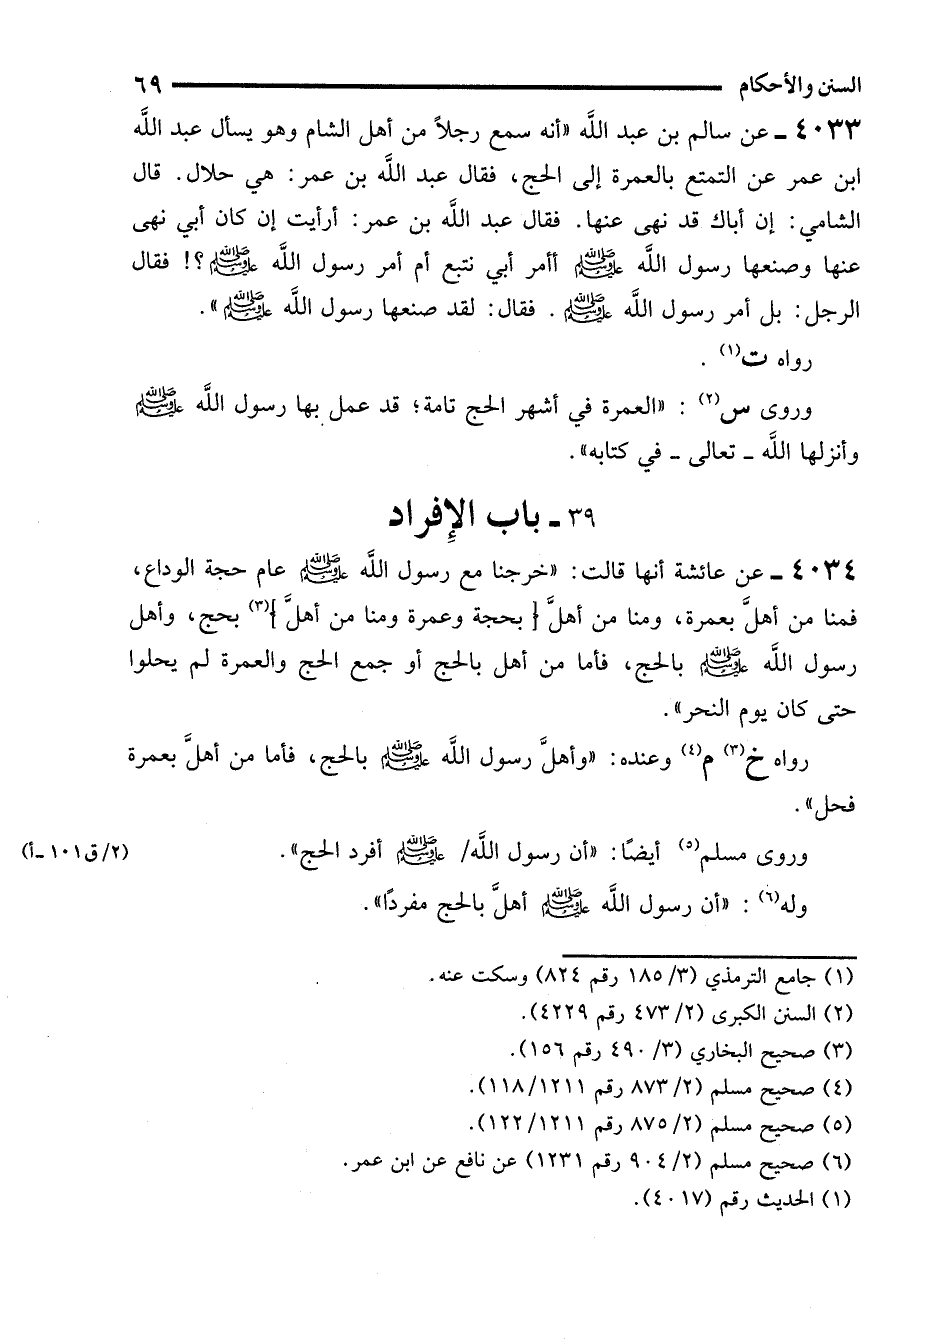 السنن والأحكام ٦٩
٤٠٣٣ ـ عن سالم بن عبد اللَّه «أنه سمع رجلاً من أهل الشام وهو يسأل عبد اللَّه
ابن عمر عن التمتع بالعمرة إلى الحج، فقال عبد اللَّه بن عمر: هي حلال. قال
الشامي: إن أباك قد نهى عنها. فقال عبد اللَّه بن عمر: أرأيت إن كان أبي نهى
عنها وصنعها رسول اللَّه ﷺ أأمر أبي نتبع أم أمر رسول اللَّه ﷺ؟! فقال
الرجل: بل أمر رسول اللَّه ﷺ. فقال: لقد صنعها رسول اللَّه ﷺ».
رواه ت(١) .
وروى س(٢) : «العمرة في أشهر الحج تامة؛ قد عمل بها رسول اللَّه ﷺ
وأنزلها اللَّه ـ تعالى ـ في كتابه».
٣٩ ـ باب الإِفراد
٤٠٣٤ ـ عن عائشة أنها قالت: «خرجنا مع رسول اللَّه ﷺ عام حجة الوداع،
فمنا من أهلَّ بعمرة، ومنا من أهلَّ [ بحجة وعمرة ومنا من أهلَّ ](٣) بحج، وأهل
رسول اللَّه ﷺ بالحج، فأما من أهل بالحج أو جمع الحج والعمرة لم يحلوا
حتى كان يوم النحر».
رواه خ(٣) م(٤) وعنده: «وأهلَّ رسول اللَّه ﷺ بالحج، فأما من أهلَّ بعمرة
فحل».
وروى مسلم(٥) أيضًا: «أن رسول اللَّه/ ﷺ أفرد الحج». (٢/ق١٠١ -أ)
وله(٦) : «أن رسول اللَّه ﷺ أهلَّ بالحج مفردًا».
(١) جامع الترمذي (٣/ ١٨٥ رقم ٨٢٤) وسكت عنه.
(٢) السنن الكبرى (٢/ ٤٧٣ رقم ٤٢٢٩).
(٣) صحيح البخاري (٣/ ٤٩٠ رقم ١٥٦).
(٤) صحيح مسلم (٢/ ٨٧٣ رقم ١٢١١/ ١١٨).
(٥) صحيح مسلم (٢/ ٨٧٥ رقم ١٢١١/ ١٢٢).
(٦) صحيح مسلم (٢/ ٩٠٤ رقم ١٢٣١) عن نافع عن ابن عمر.
(١) الحديث رقم (٤٠١٧).